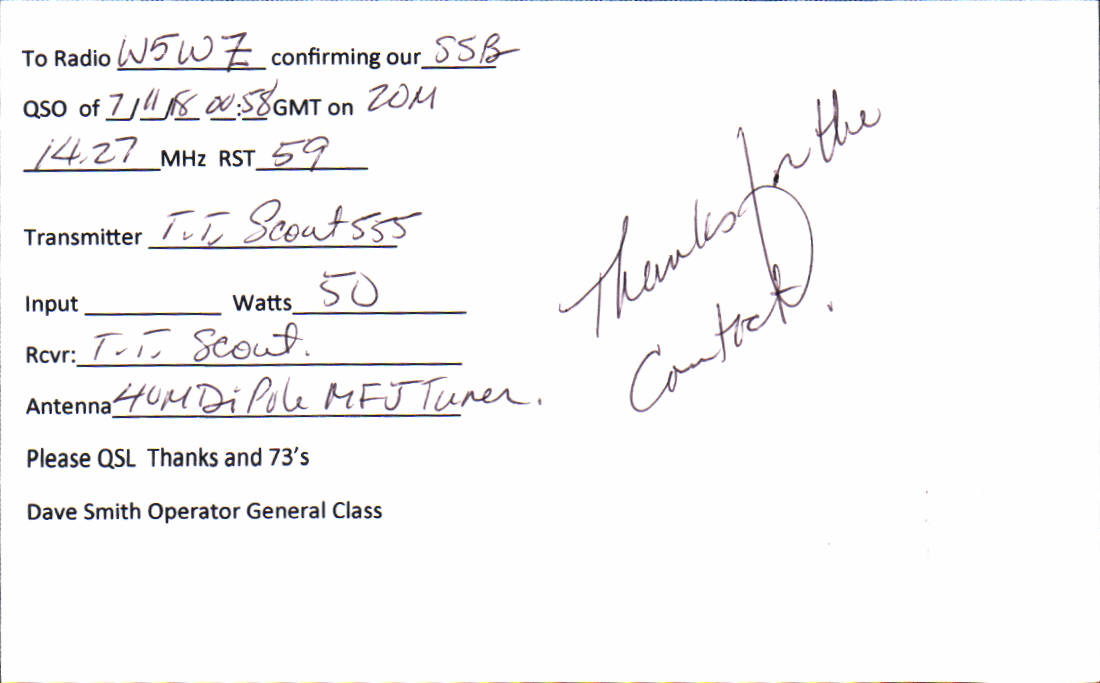 To Radio W5WZ confirming our SSB
QSO of 7/11/18 00:58 GMT on 20M
14.27 MHz RST 59
Transmitter T.T. Scout 555
Input Watts 50
Rcvr: T.T. Scout.
Antenna 40M DiPole MFJ Tuner.
Please QSL Thanks and 73's
Dave Smith Operator General Class
Thanks for the
Contact.